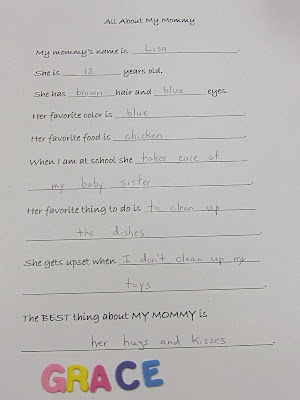 All About My Mommy
My mommy's name is Lisa.
She is 12 years old.
She has brown hair and blue eyes.
Her favorite color is blue.
Her favorite food is chicken.
When I am at school she takes care of
my baby sister.
Her favorite thing to do is to clean up
the dishes.
She gets upset when I don't clean up my
toys.
The BEST thing about MY MOMMY is
her hugs and kisses.
GRACE